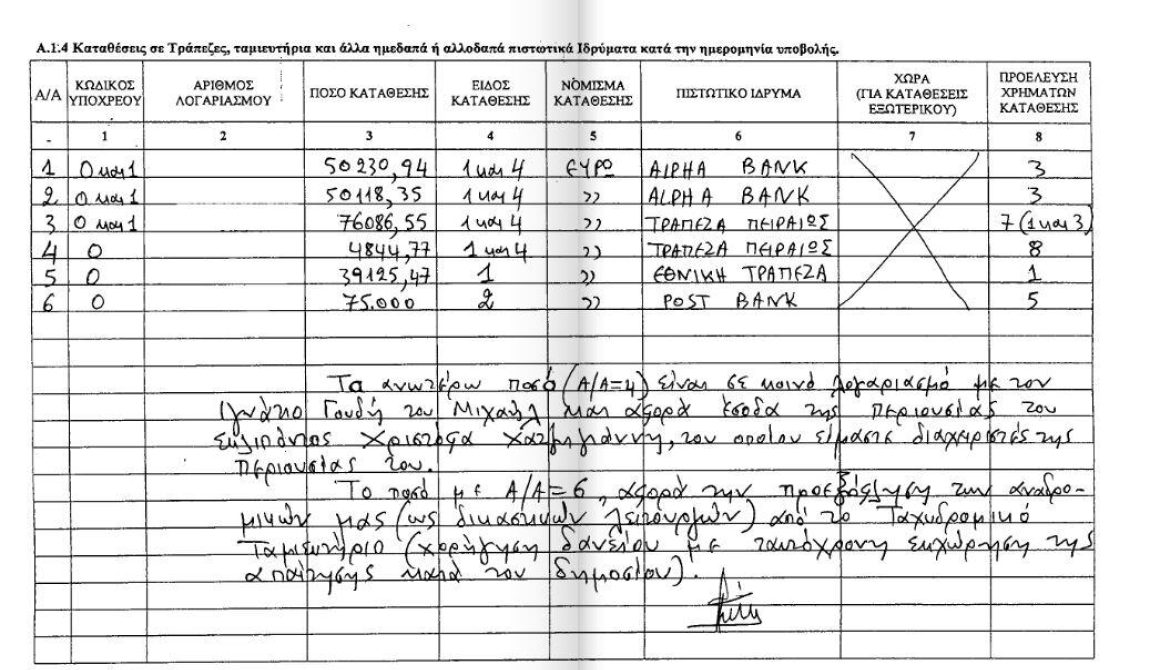 Α.1.4 Καταθέσεις σε Τράπεζες, ταμιευτήρια και άλλα ημεδαπά ή αλλοδαπά πιστωτικά Ιδρύματα κατά την ημερομηνία υποβολής.
Α/Α ΚΩΔΙΚΟΣ ΥΠΟΧΡΕΟΥ ΑΡΙΘΜΟΣ ΛΟΓΑΡΙΑΣΜΟΥ ΠΟΣΟ ΚΑΤΑΘΕΣΗΣ ΕΙΔΟΣ ΚΑΤΑΘΕΣΗΣ ΝΟΜΙΣΜΑ ΚΑΤΑΘΕΣΗΣ ΠΙΣΤΩΤΙΚΟ ΙΔΡΥΜΑ ΧΩΡΑ (ΓΙΑ ΚΑΤΑΘΕΣΕΙΣ ΕΞΩΤΕΡΙΚΟΥ) ΠΡΟΕΛΕΥΣΗ ΧΡΗΜΑΤΩΝ ΚΑΤΑΘΕΣΗΣ
- 1 2 3 4 5 6 7 8
1 0 και 1 50230,94 1 και 4 ΕΥΡΩ ALPHA BANK 3
2 0 και 1 50118,35 1 και 4 )) ALPHA BANK 3
3 0 και 1 76086,55 1 και 4 )) ΤΡΑΠΕΖΑ ΠΕΙΡΑΙΩΣ 7 (1 και 3)
4 0 4844,77 1 και 4 )) ΤΡΑΠΕΖΑ ΠΕΙΡΑΙΩΣ 8
5 0 39125,47 1 )) ΕΘΝΙΚΗ ΤΡΑΠΕΖΑ 1
6 0 75.000 2 )) POST BANK 5
Τα ανωτέρω ποσό (Α/Α=4) είναι σε κοινό λογαριασμό με τον
Ιγνάτιο Γουδή του Μιχαήλ και αφορά έσοδα της περιουσίας του
Χριστόφα, του οποίου είμαστε διαχειριστές της
περιουσίας του.
Το ποσό με Α/Α=6, αφορά την προεξόφληση των αναδρο-
μικών μας (ως δικαστικών λειτουργών) από το Ταχυδρομικό
Ταμιευτήριο (χορήγηση δανείου με ταυτόχρονη εκχώρηση της
απαίτησης κατά του δημοσίου).